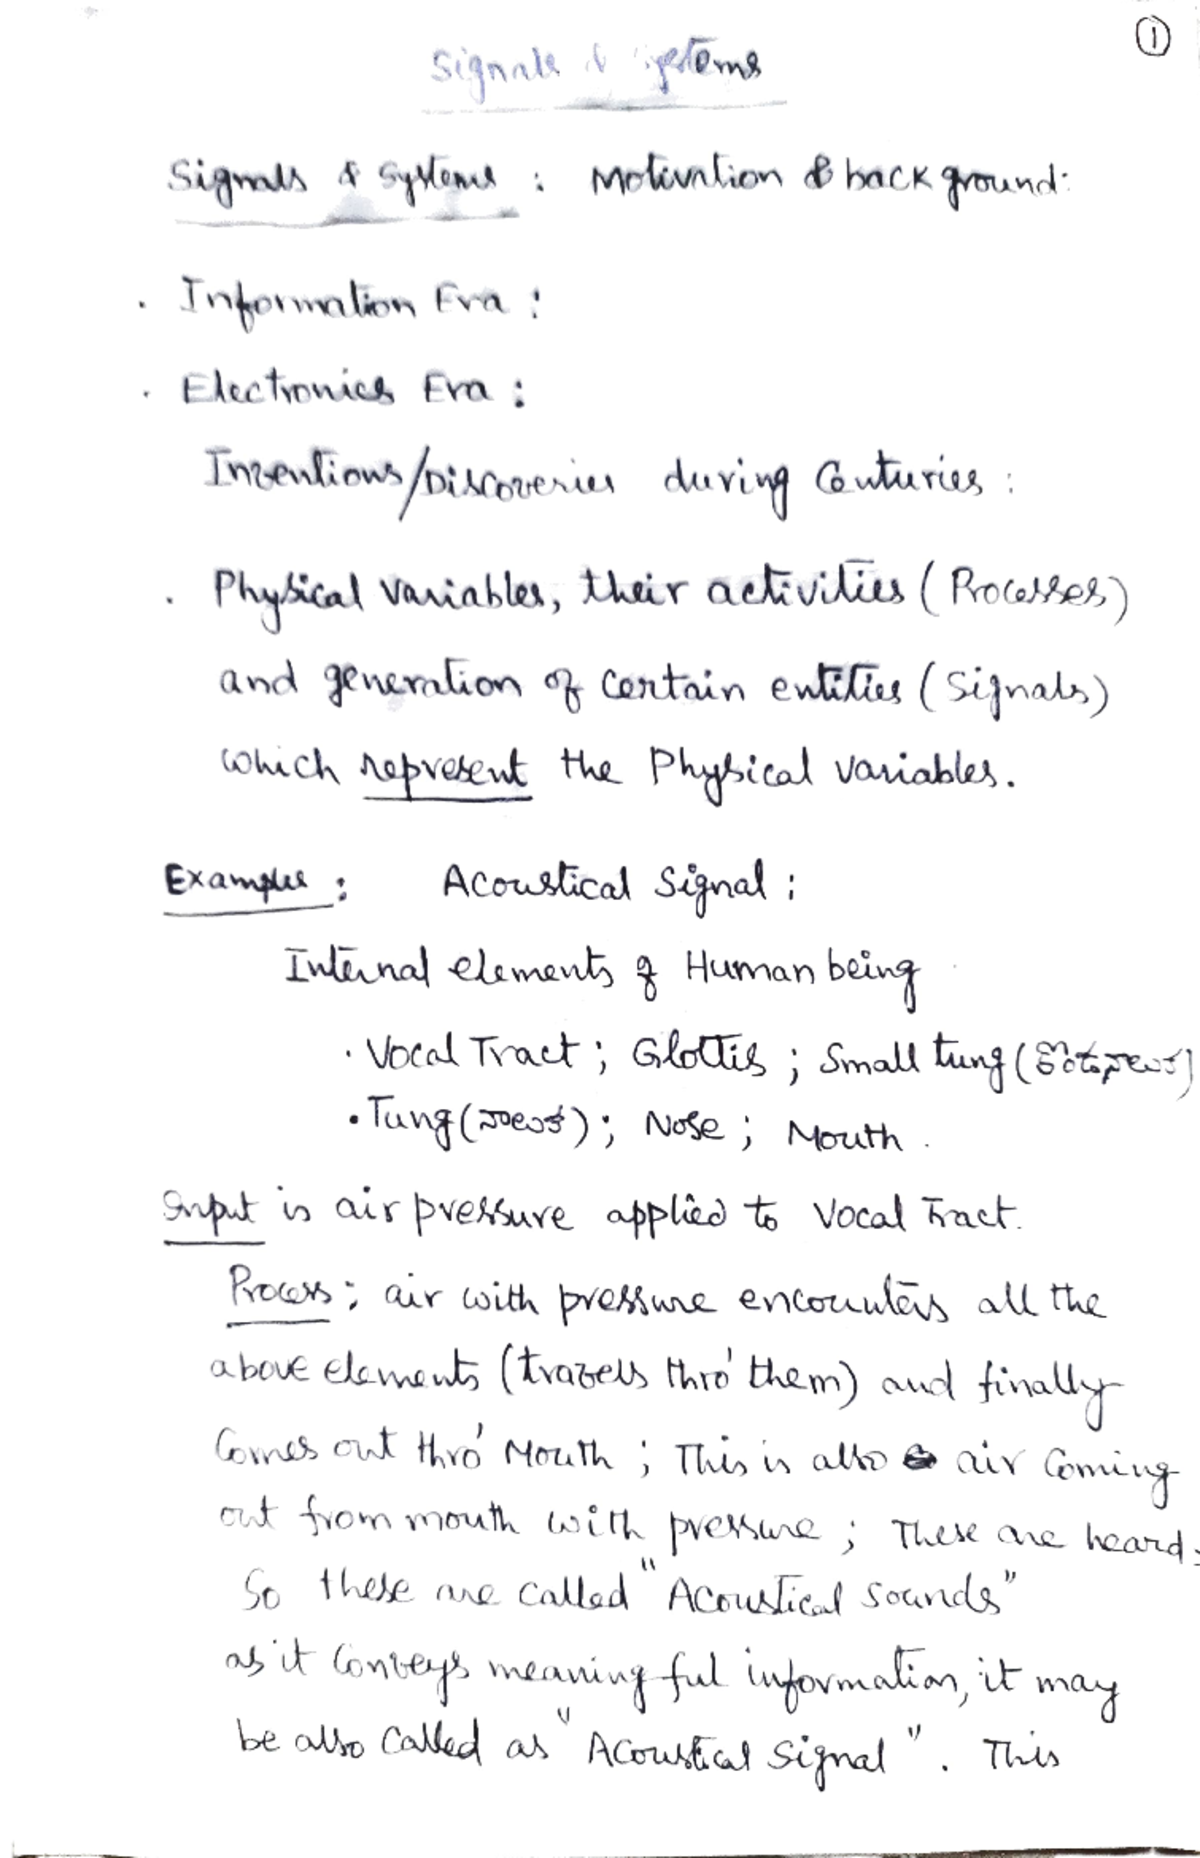 ①
Signals & Systems
Signals & Systems : Motivation & background:
. Information Era :
. Electronics Era :
Inventions/Discoveries during Centuries :
. Physical variables, their activities (Processes)
and generation of certain entities (Signals)
which represent the Physical variables.
Examples : Acoustical Signal :
Internal elements of Human being
. Vocal Tract ; Glottis ; Small tung (
. Tung (నాలుక) ; Nose ; Mouth .
Input is air pressure applied to Vocal Tract.
Process : air with pressure encounters all the
above elements (travels thro' them) and finally
Comes out thro' Mouth ; This is also air Coming
out from mouth with pressure ; These are heard.
So these are called "Acoustical Sounds"
as it Conveys meaningful information, it may
be also Called as "Acoustical Signal". This